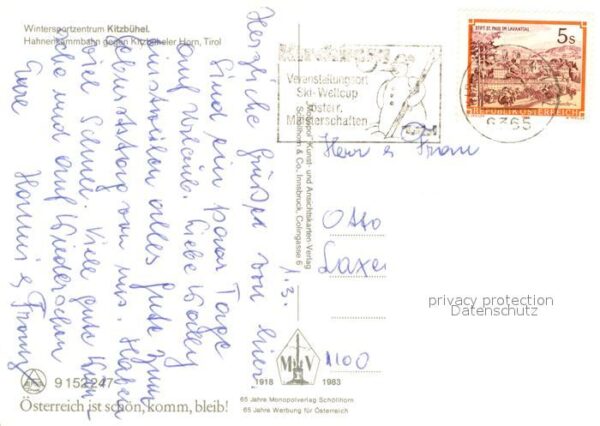 Wintersportzentrum Kitzbühel.
Hahnenkammbahn gegen Kitzbüheler Horn, Tirol
1.3.
Herzliche Grüße von hier.
Sind ein paar Tage
auf Urlaub. Liebe Wally
inzwischen alles gute zum
Geburtstag von uns. Haben
viel Schnee. Viele gute
und auf Wiedersehen
Eure Hanni & Franz
Monopol Kunst- und Ansichtskarten-Verlag
Schöllhorn & Co., Innsbruck, Colingasse 6
Veranstaltungsort
Ski-Weltcup
Meisterschaften
STIFT ST. PAUL IM LAVANTTAL
5S
REPUBLIK ÖSTERREICH
6365
Herr & Frau
Otto
1100
privacy protection
Datenschutz
MV
1918 1983
65 Jahre Monopolverlag Schöllhorn
65 Jahre Werbung für Österreich
9 152 247
Österreich ist schön, komm, bleib!